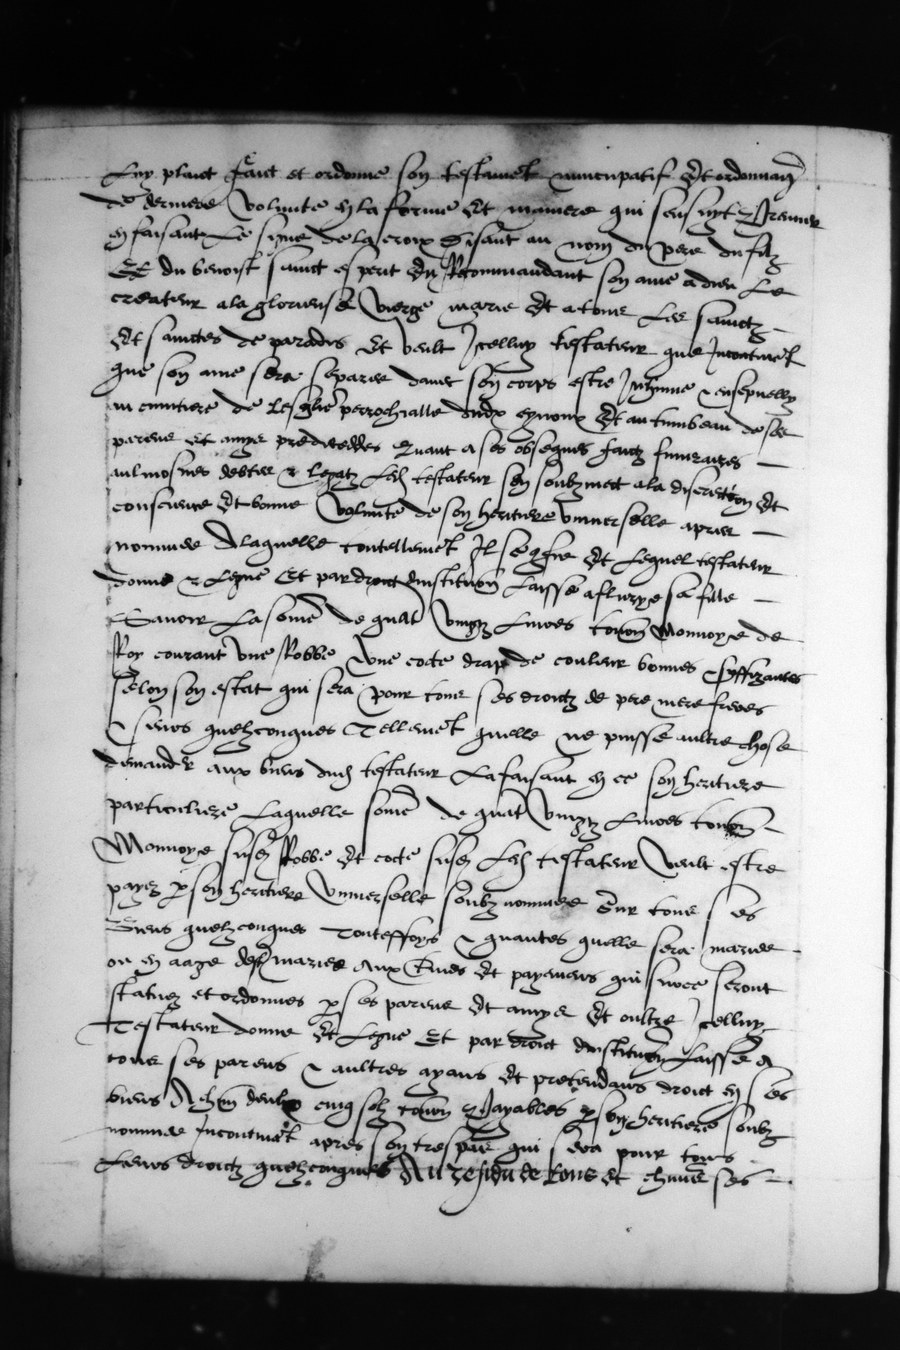 Luy plaict faict et ordonne son testament nuncupatif et ordonnance
de derniere volunte en la forme et maniere qui sensuyt Premier
en faisant le signe de la croix disant au nom du pere du filz
Et du benoist sainct esperit En Recommandant son ame a dieu Le
createur a la glorieuse vierge marie Et a tous Les sainctz
Et sainctes de paradis Et veult Icelluy testateur que Incontinent
que son ame sera separee dauec son corps estre Inhume & ensepuelly
au cimitiere de Lesglise perrochialle dudx Et au tumbeau de ses
parens et amys predecedes Quant a ses obseques faictz funeraires
aulmosnes debtes & legatz Led testateur sen soubzmect a la discretion Et
conscience Et bonne volunte de son heritiere vniuerselle apres
nommee A laquelle totellement Il se confie Et Lequel testateur
donne & Legue Et par droict dinstitution Laisse a sa fille
Scauoir La some de quatre vingtz Liures tourn Monnoye de
Roy courant vne Robbe vne cocte drap de couleur bonnes suffizantes
selon son estat qui sera pour tous ses droictz de pere mere freres
& seurs quelzconques Tellement quelle ne puisse aultre chose
demander aux biens dud testateur La faisant en ce son heritiere
particuliere Laquelle some de quatre vingtz Liures tourn
Monnoye susd Robbe et cocte susd Led testateur veult estre
payez par son heritiere vniuerselle soubz nommee Sur tous ses
Biens quelzconques Touteffoys & quantes quelle sera mariee
ou en aage destre mariee Aux termes Et payemens qui sur ce seront
statuez et ordonnes par ses parens Et amys Et oultre Icelluy
Testateur donne Et Legue Et par droict dinstitution Laisse a
tous ses parens & aultres ayans Et pretendans droict en ses
biens A chun deulx cinq solz tourn Payables par son heritiere soubz
nommee Incontinent apres son trespas qui sera pour tous
Leurs droictz quelzconques Au residu de tous Et chascuns ses